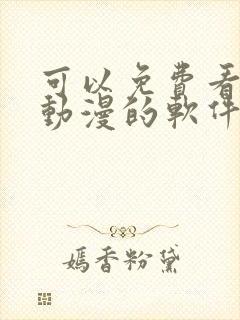 可以免費看
動漫的軟件
嫣香粉黛